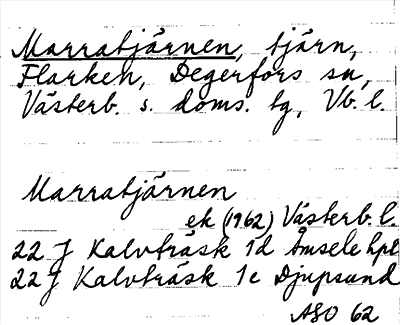 Marratjärnen, tjärn,
Flarken, Degerfors sn,
Västerb. s. doms. tg, Vb. l.
Marratjärnen
ek (1962) Västerb. l.
22 J Kalvträsk 1d Åmsele hpl
22 J Kalvträsk 1c Djupsund
ASO 62